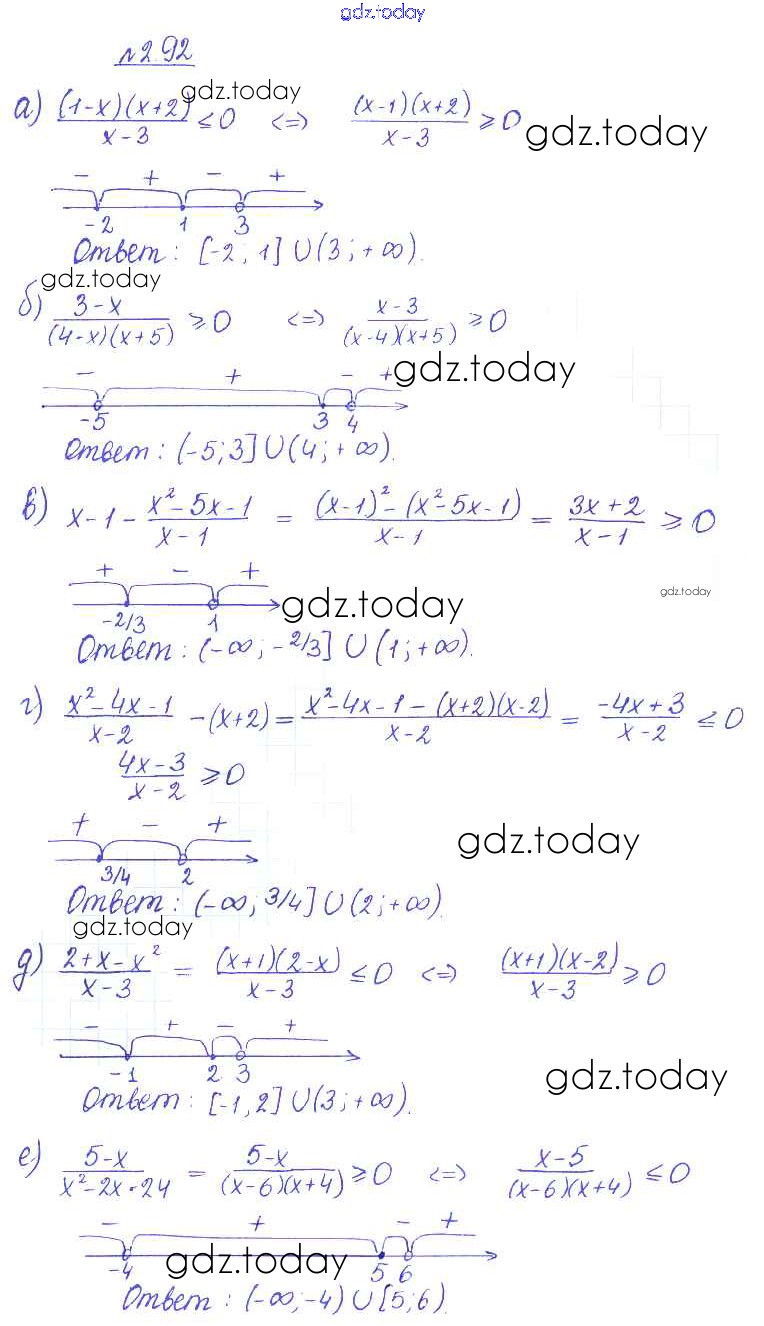 gdz.today
№2.92
а) (1-x)(x+2)/(x-3) ≤ 0 <=> (x-1)(x+2)/(x-3) ≥ 0
gdz.today
gdz.today
- + - +
-2 1 3
Ответ: [-2; 1] ∪ (3; +∞).
gdz.today
б) (3-x)/((4-x)(x+5)) ≥ 0 <=> (x-3)/((x-4)(x+5)) ≥ 0
- + - +
gdz.today
-5 3 4
Ответ: (-5; 3] ∪ (4; +∞).
в) x-1 - (x²-5x-1)/(x-1) = ((x-1)² - (x²-5x-1))/(x-1) = (3x+2)/(x-1) ≥ 0
+ - +
gdz.today
gdz.today
-2/3 1
Ответ: (-∞; -2/3] ∪ (1; +∞).
г) (x²-4x-1)/(x-2) - (x+2) = (x²-4x-1-(x+2)(x-2))/(x-2) = (-4x+3)/(x-2) ≤ 0
(4x-3)/(x-2) ≥ 0
+ - +
gdz.today
3/4 2
Ответ: (-∞; 3/4] ∪ (2; +∞).
gdz.today
д) (2+x-x²)/(x-3) = (x+1)(2-x)/(x-3) ≤ 0 <=> (x+1)(x-2)/(x-3) ≥ 0
- + - +
-1 2 3
gdz.today
Ответ: [-1, 2] ∪ (3; +∞).
е) (5-x)/(x²-2x-24) = (5-x)/((x-6)(x+4)) ≥ 0 <=> (x-5)/((x-6)(x+4)) ≤ 0
- + - +
-4 5 6
gdz.today
Ответ: (-∞; -4) ∪ [5; 6).